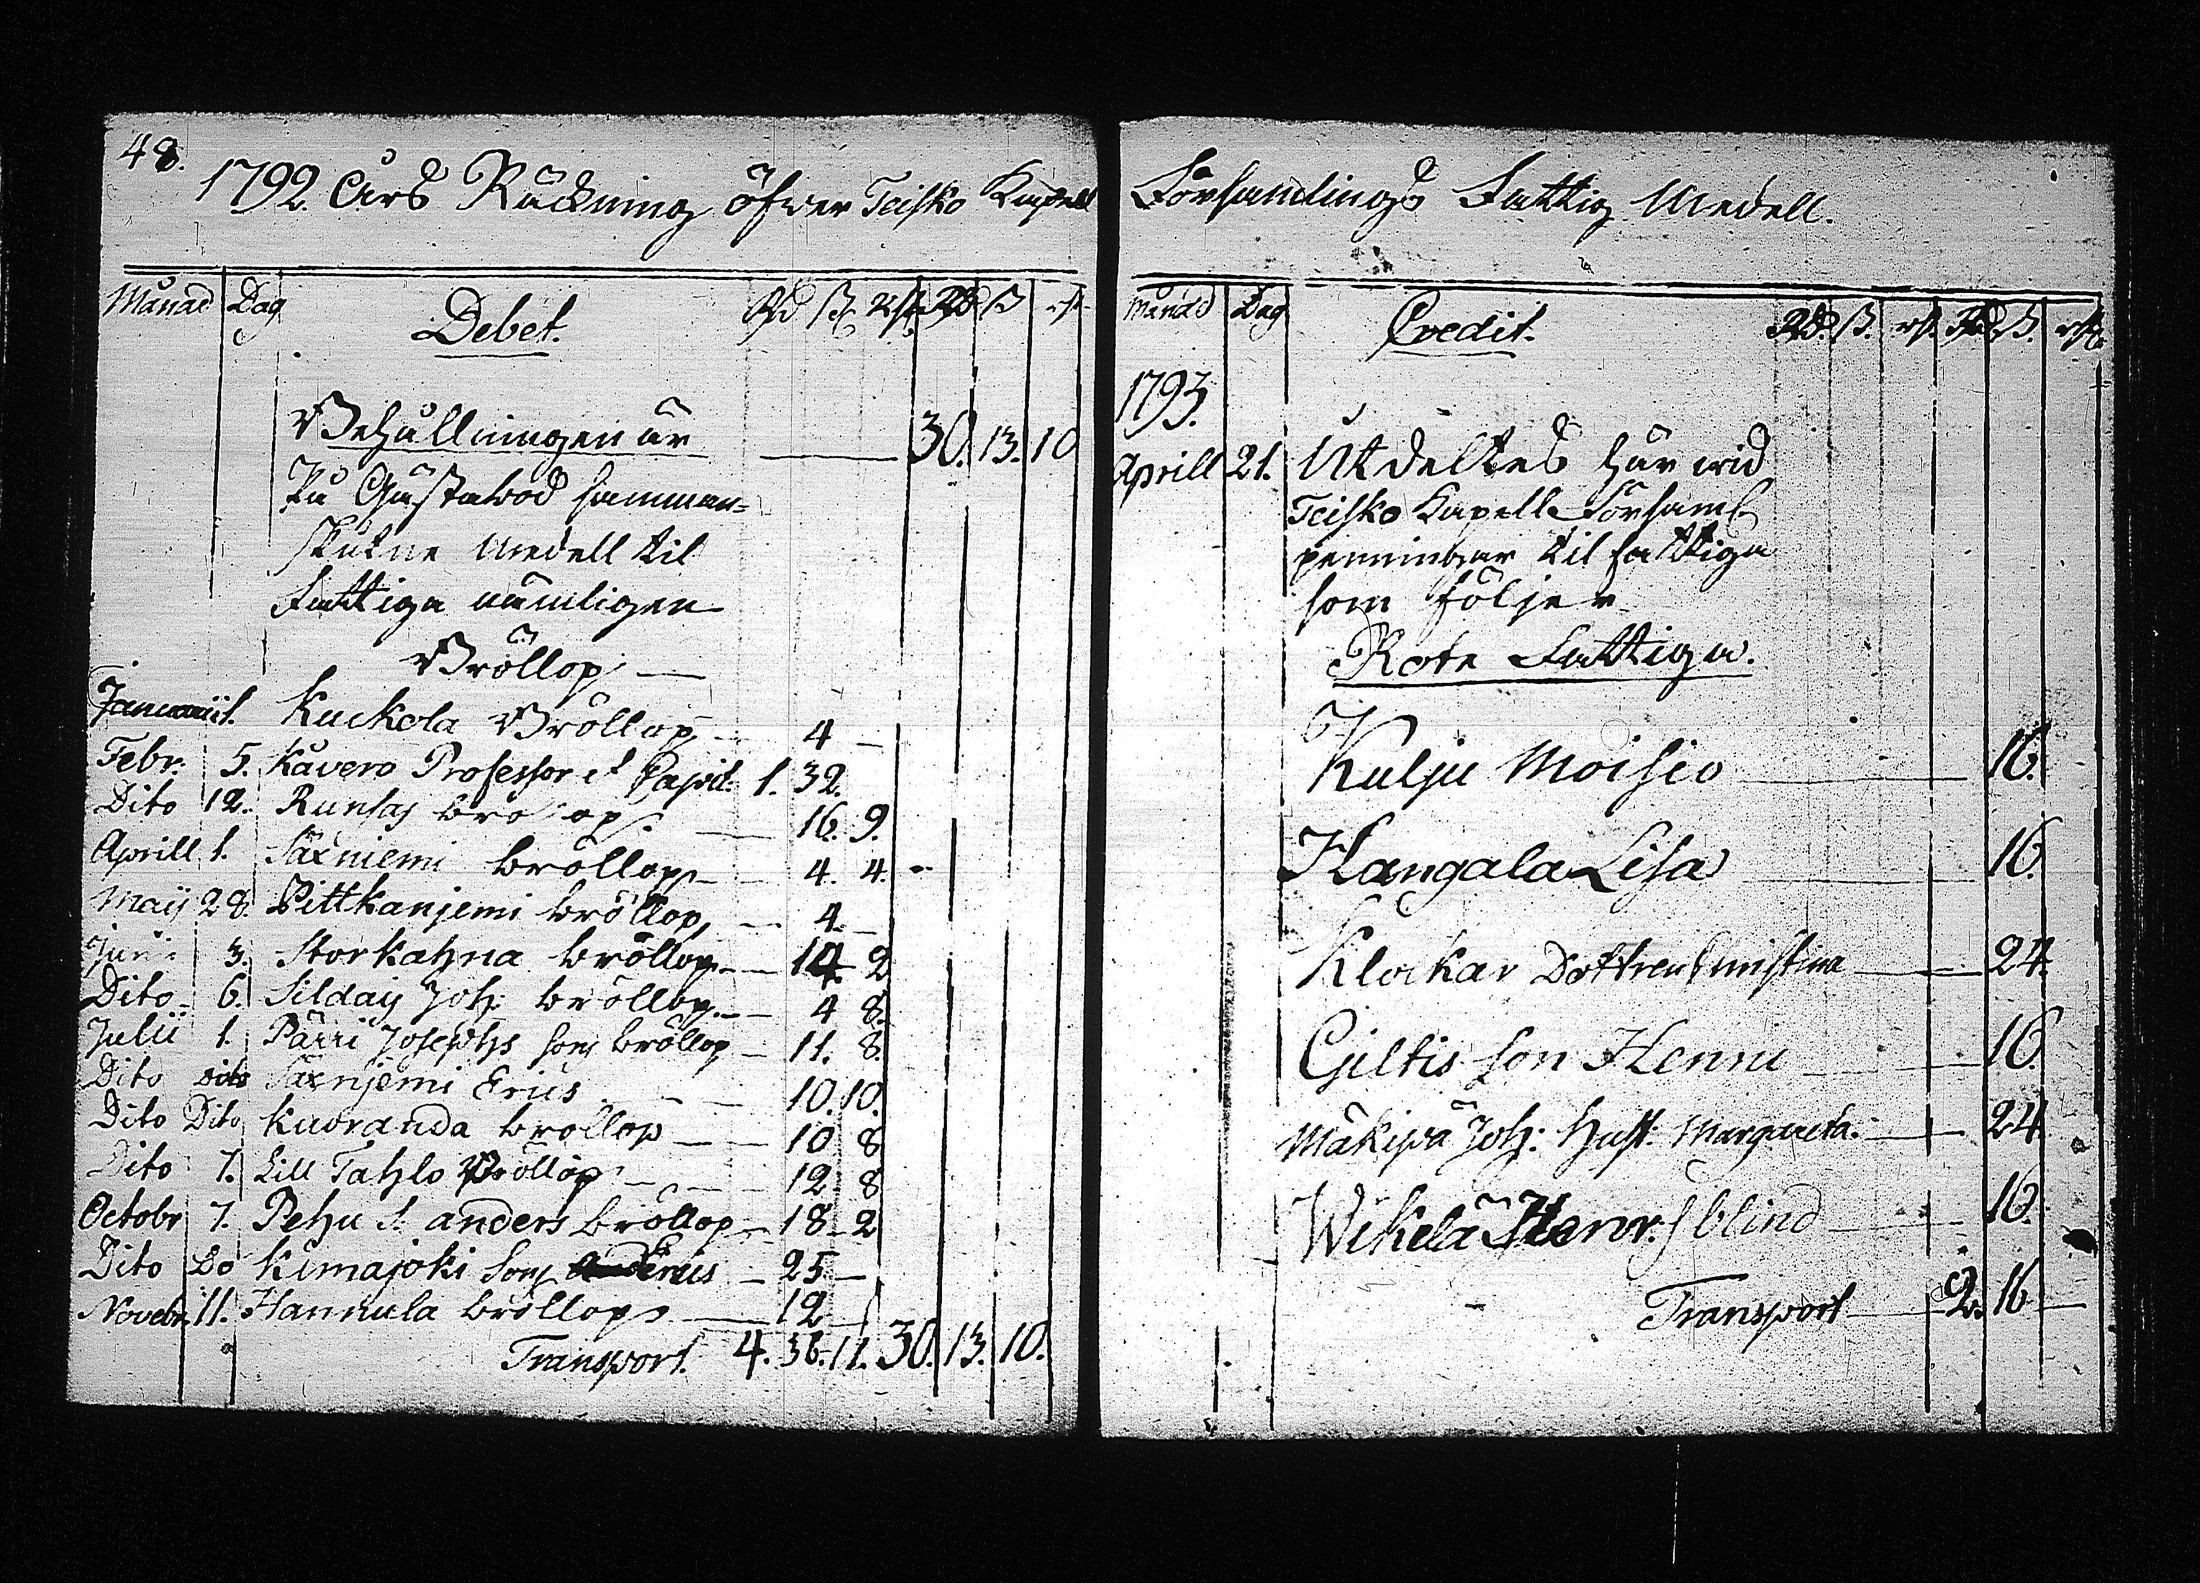 48.
1792 Års Räckning öfwer Teisko Kapell
Månad Dag Debet. Rd ß rst Rd ß rst
Behållningen är 30. 13. 10
På Gästabod samman-
skutne Medell til
Fattiga nämligen
Bröllop
Januarii 1. Kuckola Bröllop 4
Febr: 5. Kåvero Professor et 1. 32.
Dito 12. 16. 9.
Aprill 1. Säxniemi bröllop 4. 4
Maij 28. Pittkanjemi bröllop 4.
Junii 3. Storkahna bröllop 14 2
Dito 6. Sildaij Joh: bröllop 4 8.
Julii 1. Pärri Josephs sons bröllop 11. 8.
Dito dito Säxnjemi Erics 10. 10.
Dito Dito Kuoranda bröllop 10 8
Dito 7. Lill Tahlo Bröllop 12 8
Octobr 7. Pehu S. anders bröllop 18 2
Dito Do Kimajoki sons Erics 25
Novebr. 11. Hannula bröllop 12
Transport. 4. 36. 11. 30. 13. 10.
Församlings Fattig Medell.
Månad Dag Credit. Rd. ß. rst. Rd ß. rst.
1793.
Aprill 21. Utdeltes här wid
Teisko Kapell Församl
penningar til fattiga
som följer
Rote Fattiga.
Kulju Moisio 16.
Kangala Lisa 16.
Klockar Dottren Christina 24.
Giltis son Henric 16.
Mäkipä Joh: Hust: Margareta. 24.
Wikelä Henr: S blind 16.
Transport 2. 16